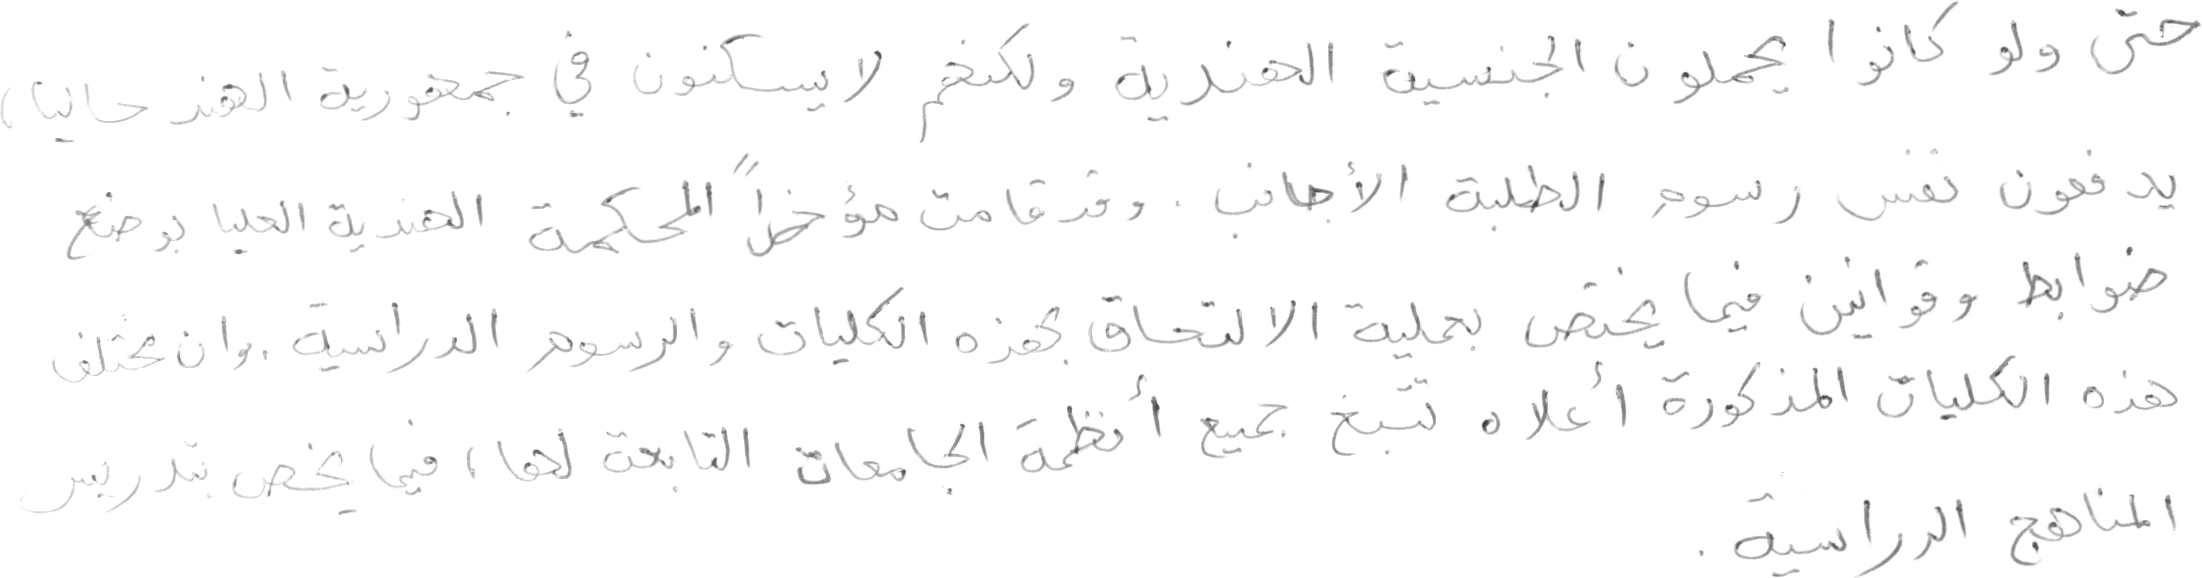 حتى ولو كانوا يحملون الجنسية الهندية ولكنهم لا يسكنون في جمهورية الهند حاليا،
يدفعون نفس رسوم الطلبة الأجانب. وقد قامت مؤخراً المحكمة الهندية العليا بوضع
ضوابط وقوانين فيما يختص بعملية الالتحاق بهذه الكليات والرسوم الدراسية. وان مختلف
هذه الكليات المذكورة أعلاه تتبع جميع أنظمة الجامعات التابعة لها، فيما يخص بتدريس
المناهج الدراسية.